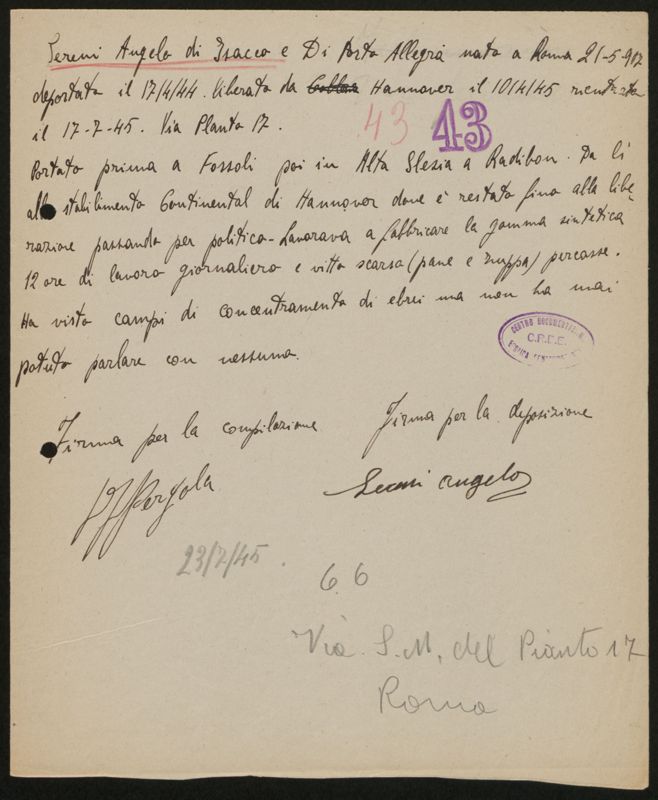 Sereni Angelo di Isacco e Di Porto Allegra nato a Roma 21-5-917
deportato il 17/4/44. Liberato da Hannover il 10/4/45 rientrato
il 17-7-45. Via Pianto 17.
43 43
Portato prima a Fossoli poi in Alta Slesia a Radibon. Da lì
allo stabilimento Continental di Hannover dove è restato fino alla libe-
razione passando per politico - Lavorava a fabbricare la gomma sintetica
12 ore di lavoro giornaliero e vitto scarso (pane e zuppa) percosse.
Ha visto campi di concentramento di ebrei ma non ha mai
potuto parlare con nessuno.
CENTRO DOCUMENTAZIONE
C.P.E.E.
Firma per la compilazione Firma per la deposizione
Pergola Sereni Angelo
23/7/45.
66
Via S.M. del Pianto 17
Roma